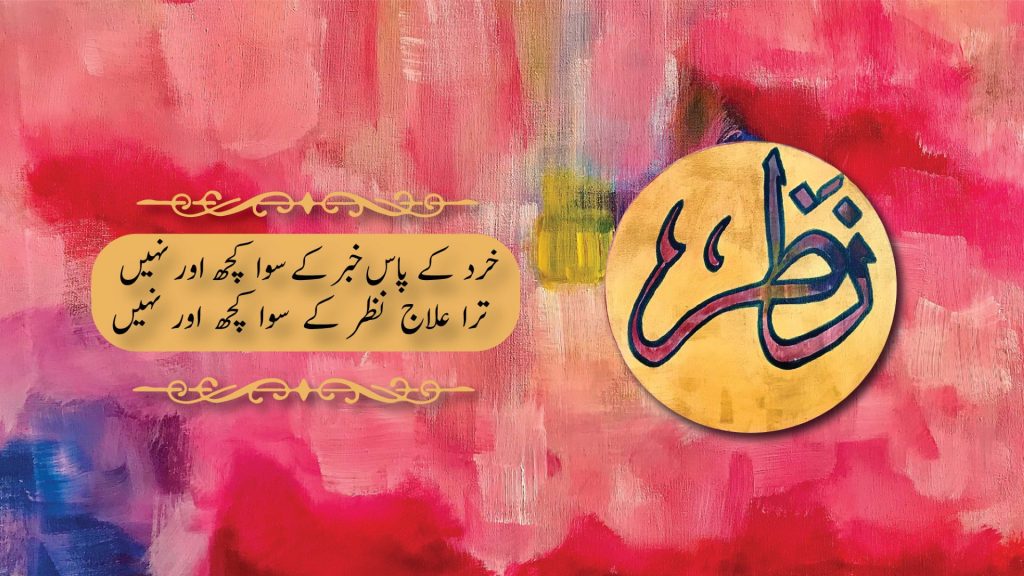 خرد کے پاس خبر کے سوا کچھ اور نہیں
ترا علاج نظر کے سوا کچھ اور نہیں
نظر